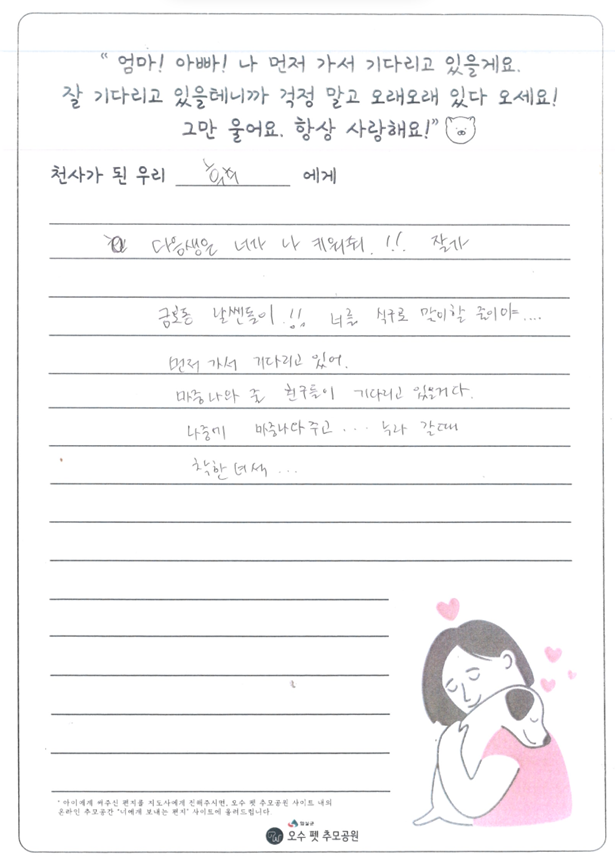 “ 엄마! 아빠! 나 먼저 가서 기다리고 있을게요.
잘 기다리고 있을테니까 걱정 말고 오래오래 있다 오세요!
그만 울어요. 항상 사랑해요!”
천사가 된 우리 에게
다음생은 너가 나 키워줘.!! 잘가
날쎈돌이!! 너를 식구로 맞이할 줄이야....
먼저 가서 기다리고 있어.
마중나와 줄 친구들이 기다리고 있을거다.
나중에 마중나와주고... 누나 갈때
착한 녀석...
* 아이에게 써주신 편지를 지도사에게 전해주시면, 오수 펫 추모공원 사이트 내의
온라인 추모공간 “너에게 보내는 편지” 사이트에 올려드립니다
임실군
오수 펫 추모공원